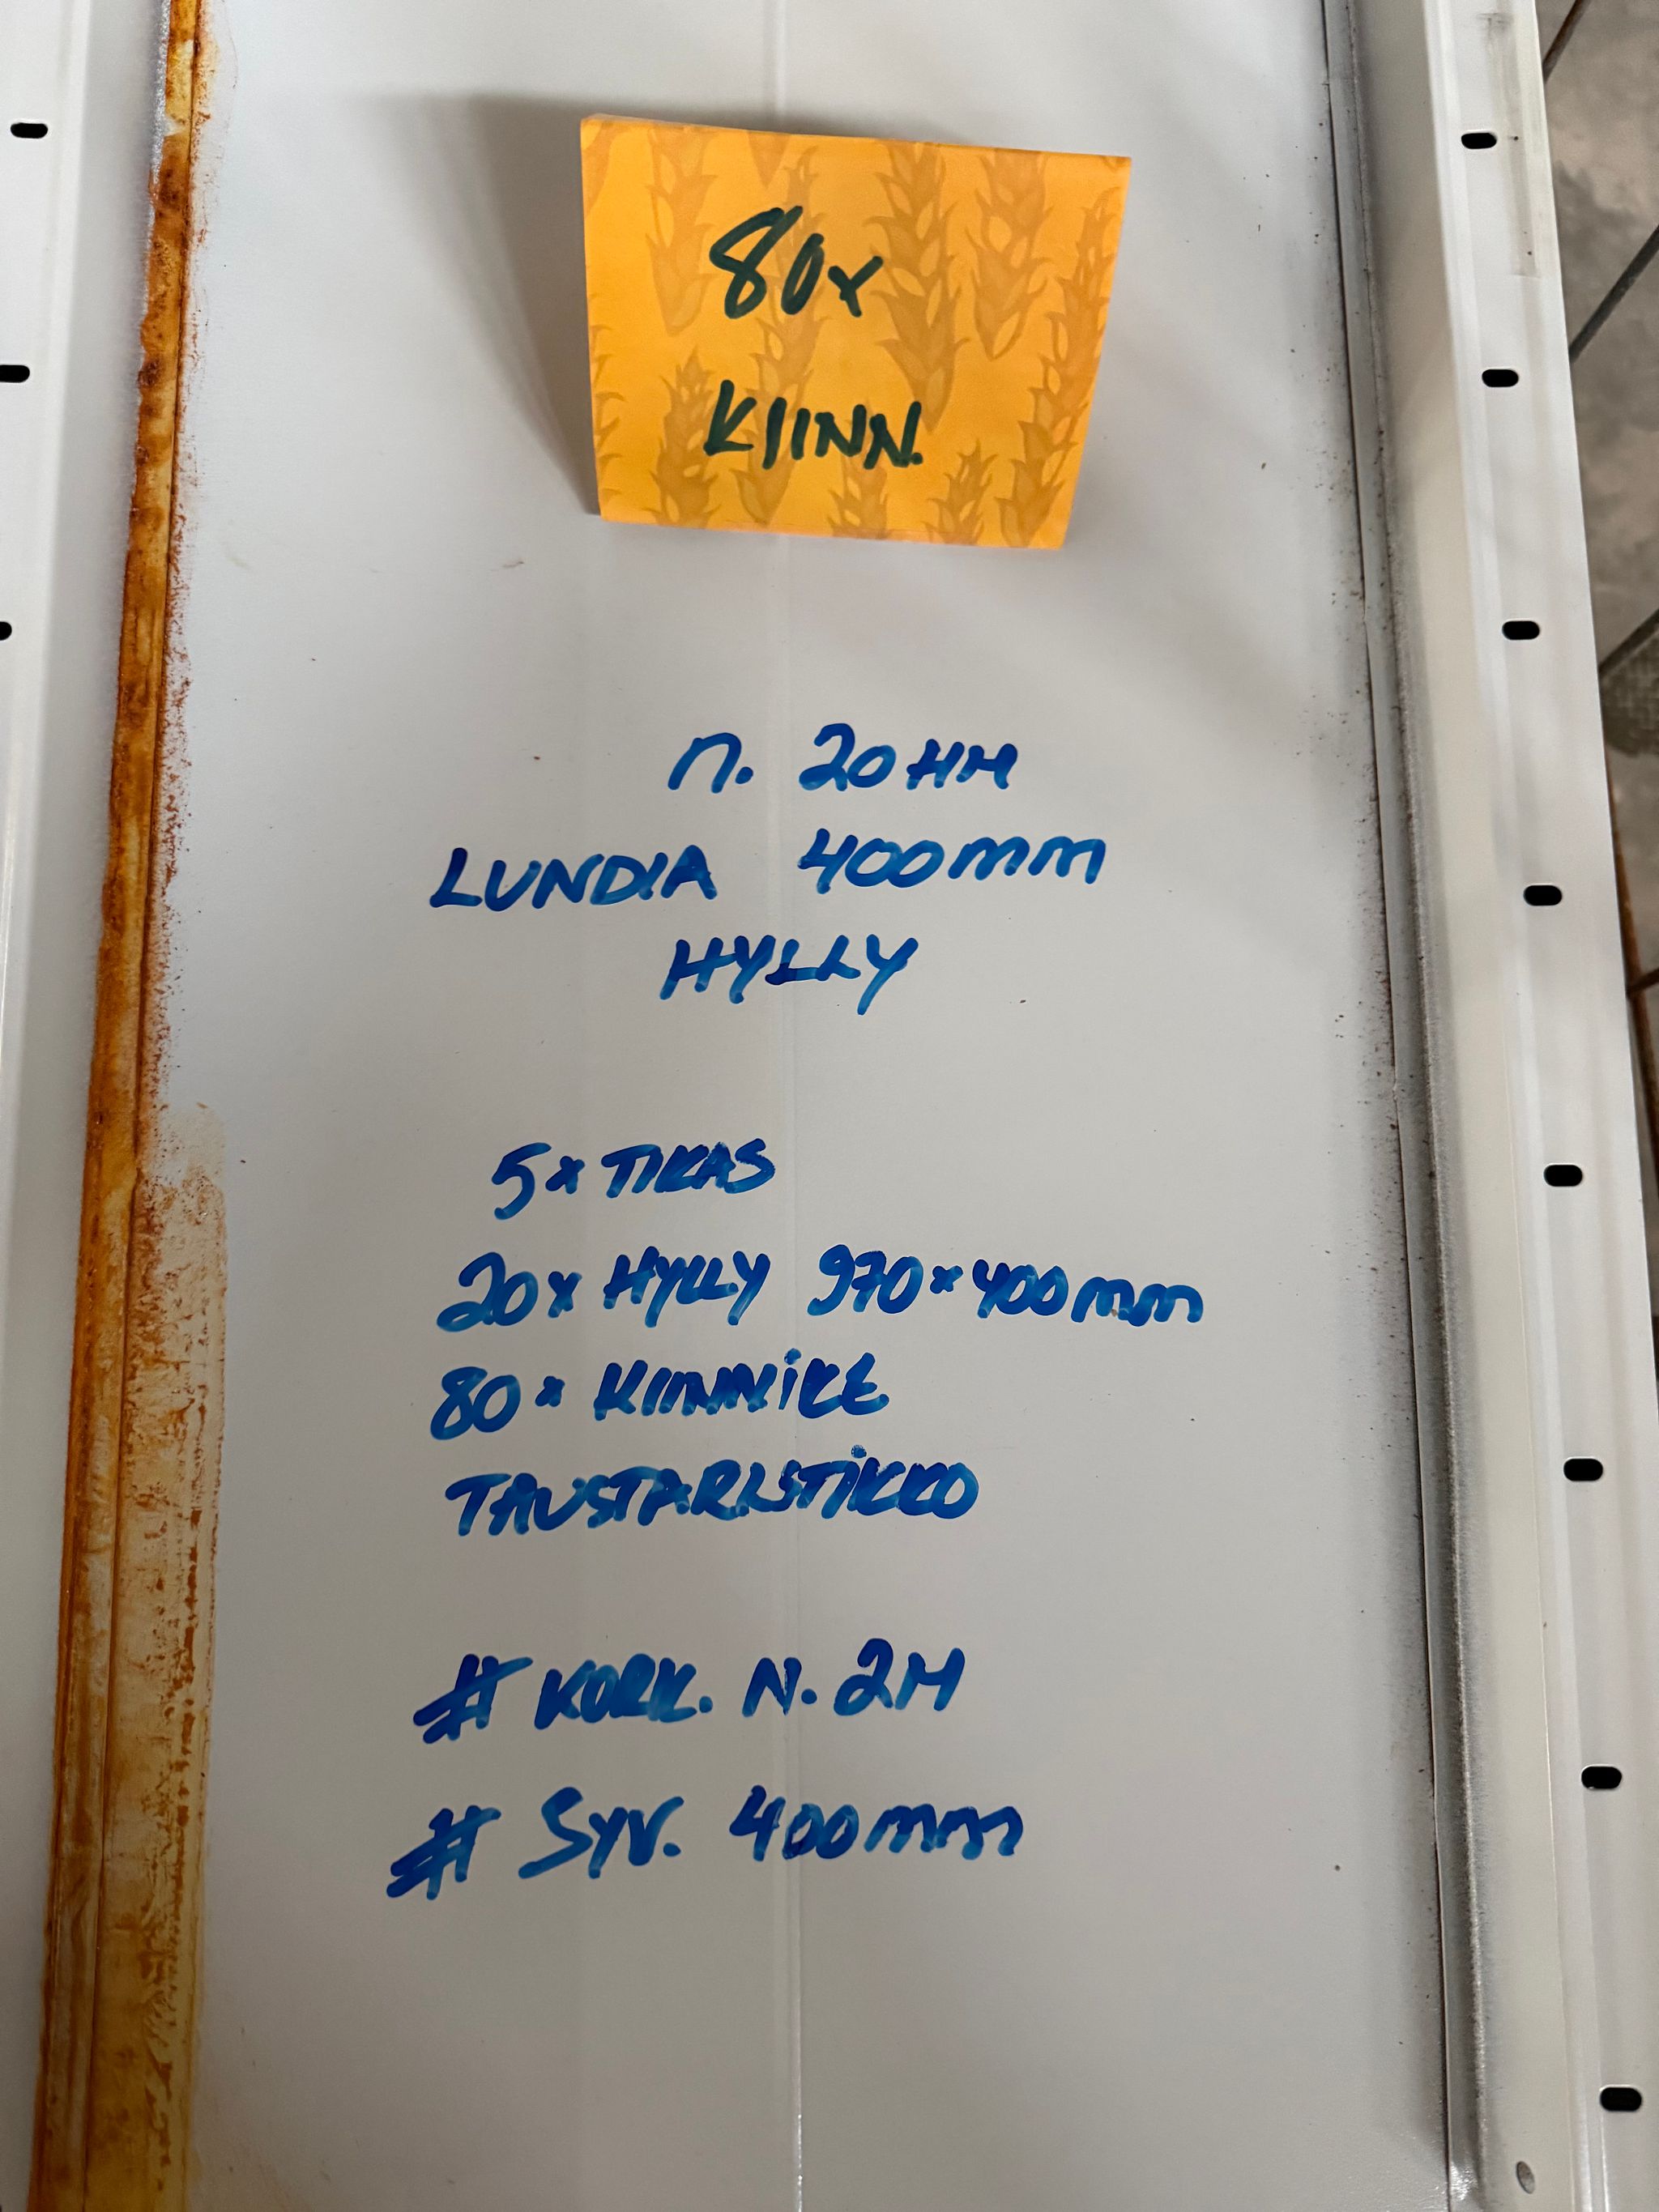 80x
KIINN.
n. 20 HM
LUNDIA 400mm
HYLLY
5x TIKAS
20x HYLLY 970x400mm
80x KIINNIKE
TAUSTARISTIKKO
# KORK. N. 2M
# SYV. 400mm